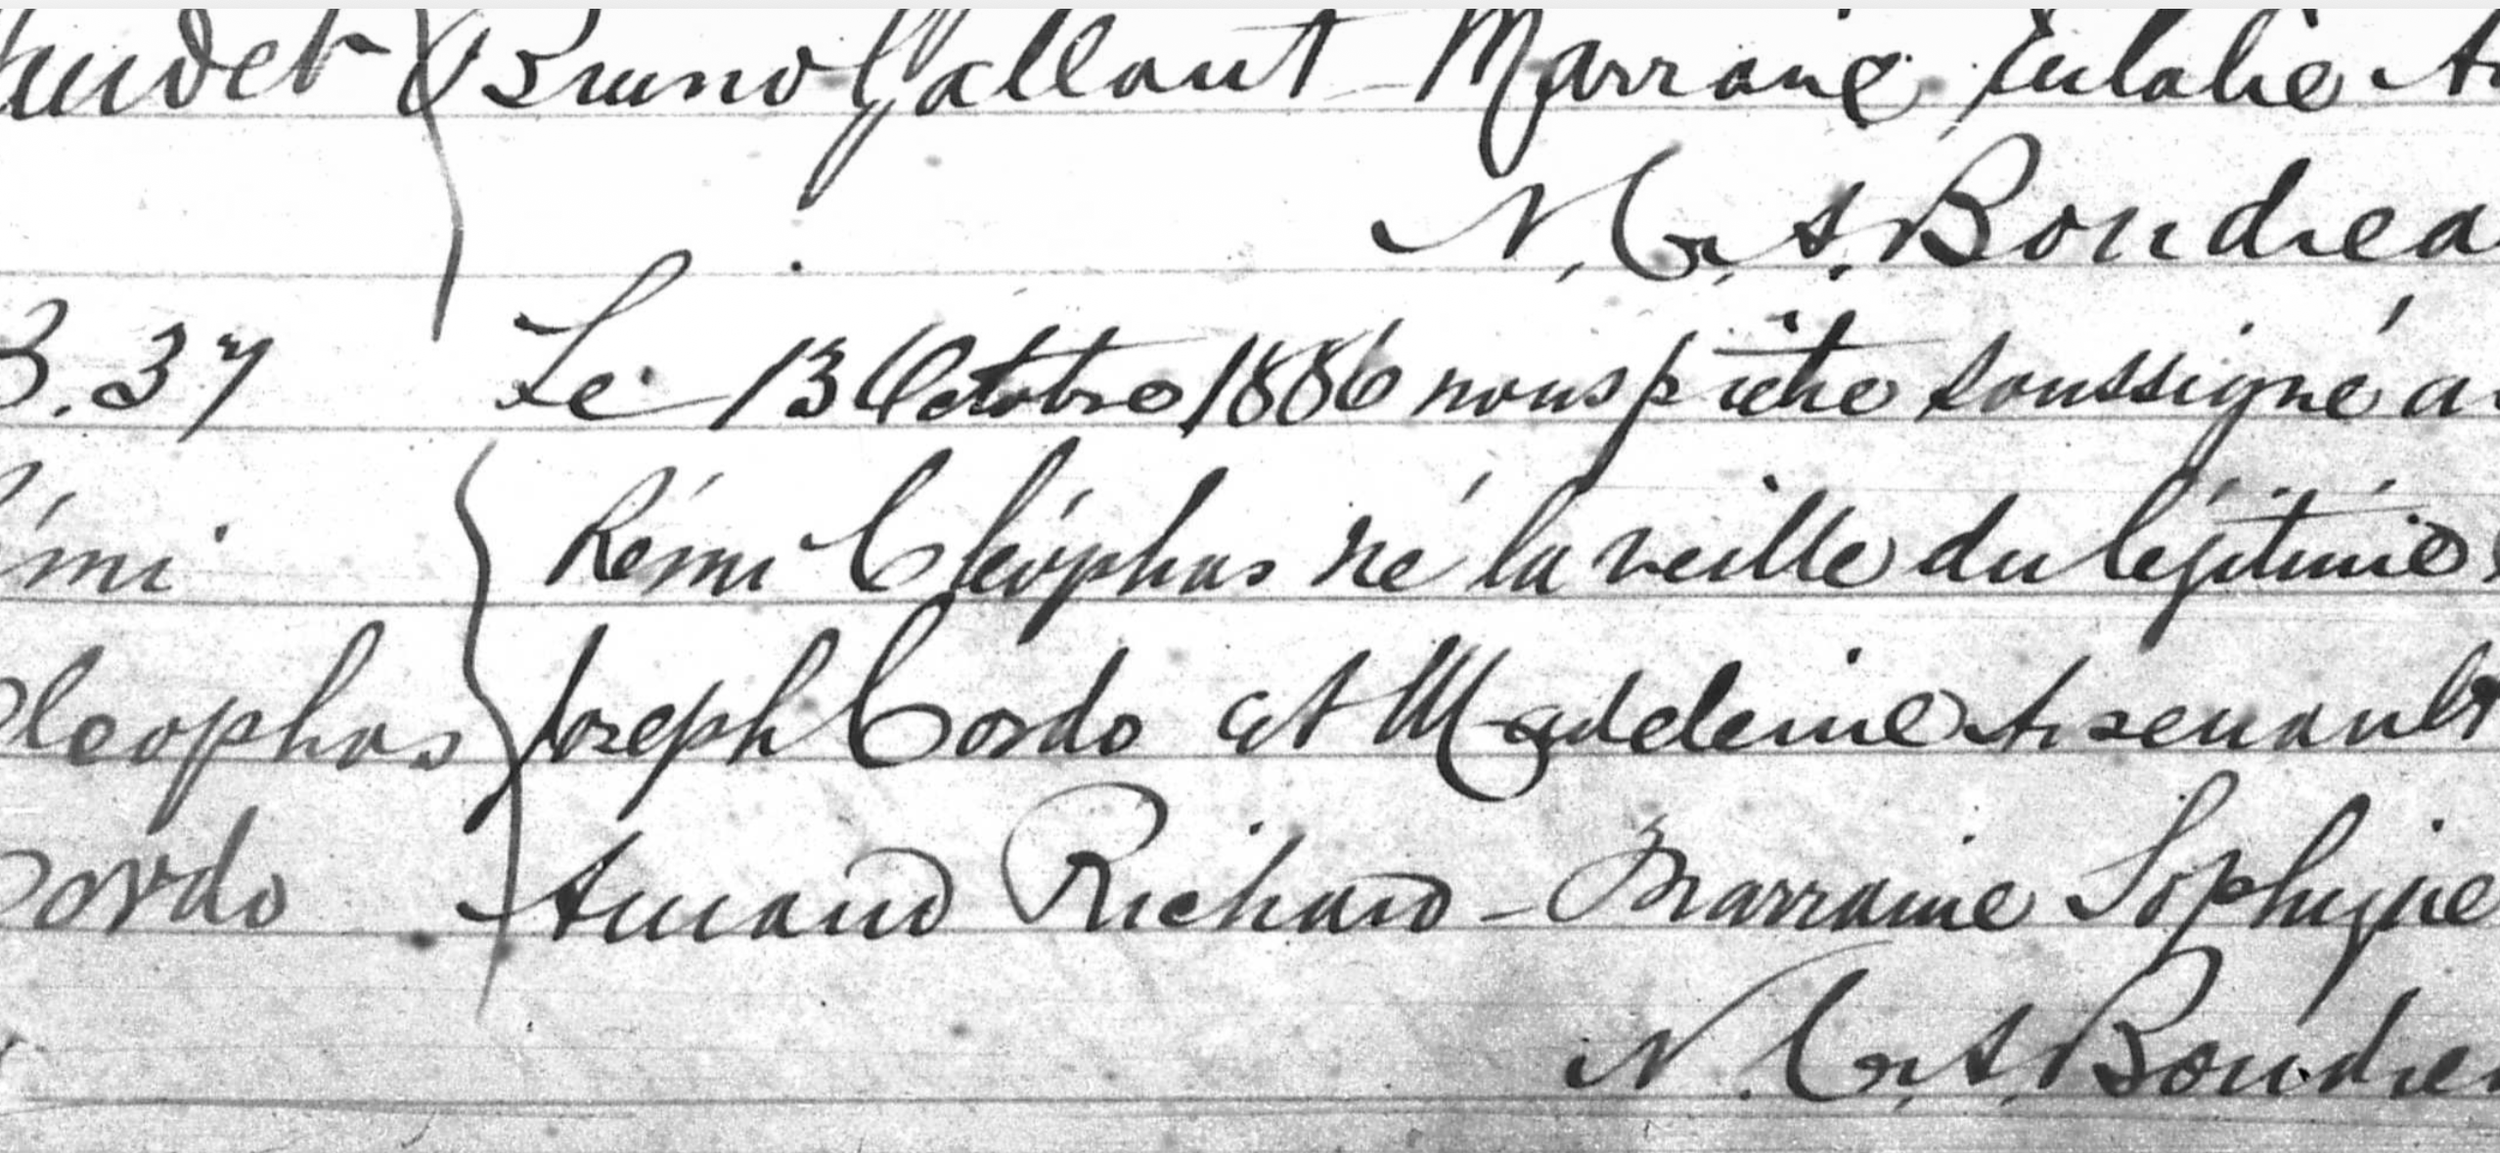 Bruno Gallant - Marraine Eulalie
N. C. A. Boudrea
B. 37 Le 13 Octobre 1886 nous prêtre soussigné a
Rémi Cléophas né la veille du légitime
Cleophas Joseph Cordo et Madeleine Arsenault
Cordo Amand Richard - Marraine Sophigne
N. C. A. Boudrea